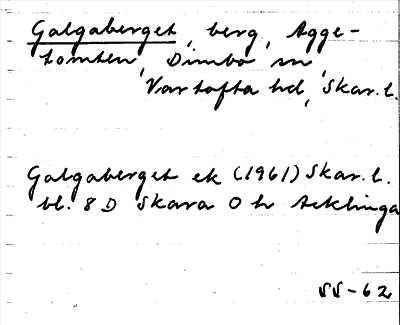 Galgaberget, berg, Agge-
tomten, Dimbo sn,
Vartofta hd, Skar. l.
Galgaberget ek (1961) Skar. l.
bl. 8 D Skara O h Acklinga
SS-62